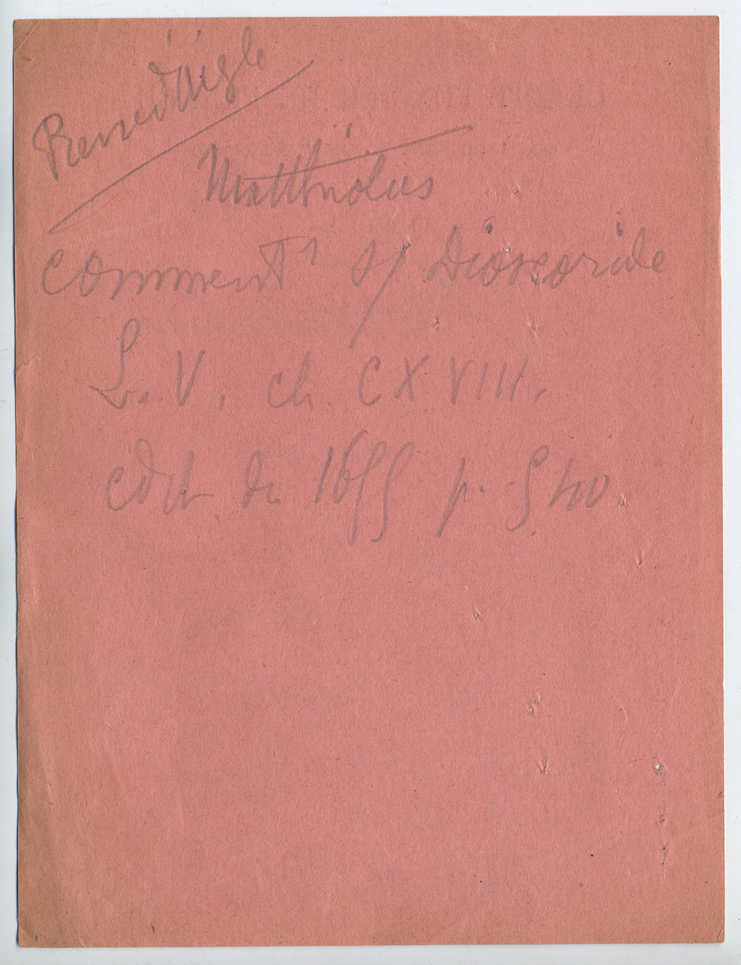 Pierre d'Aigle
Matthiolus
comment^r s/ Dioscoride
L. V. ch. CXVIII.
edit de 1655 p. 540